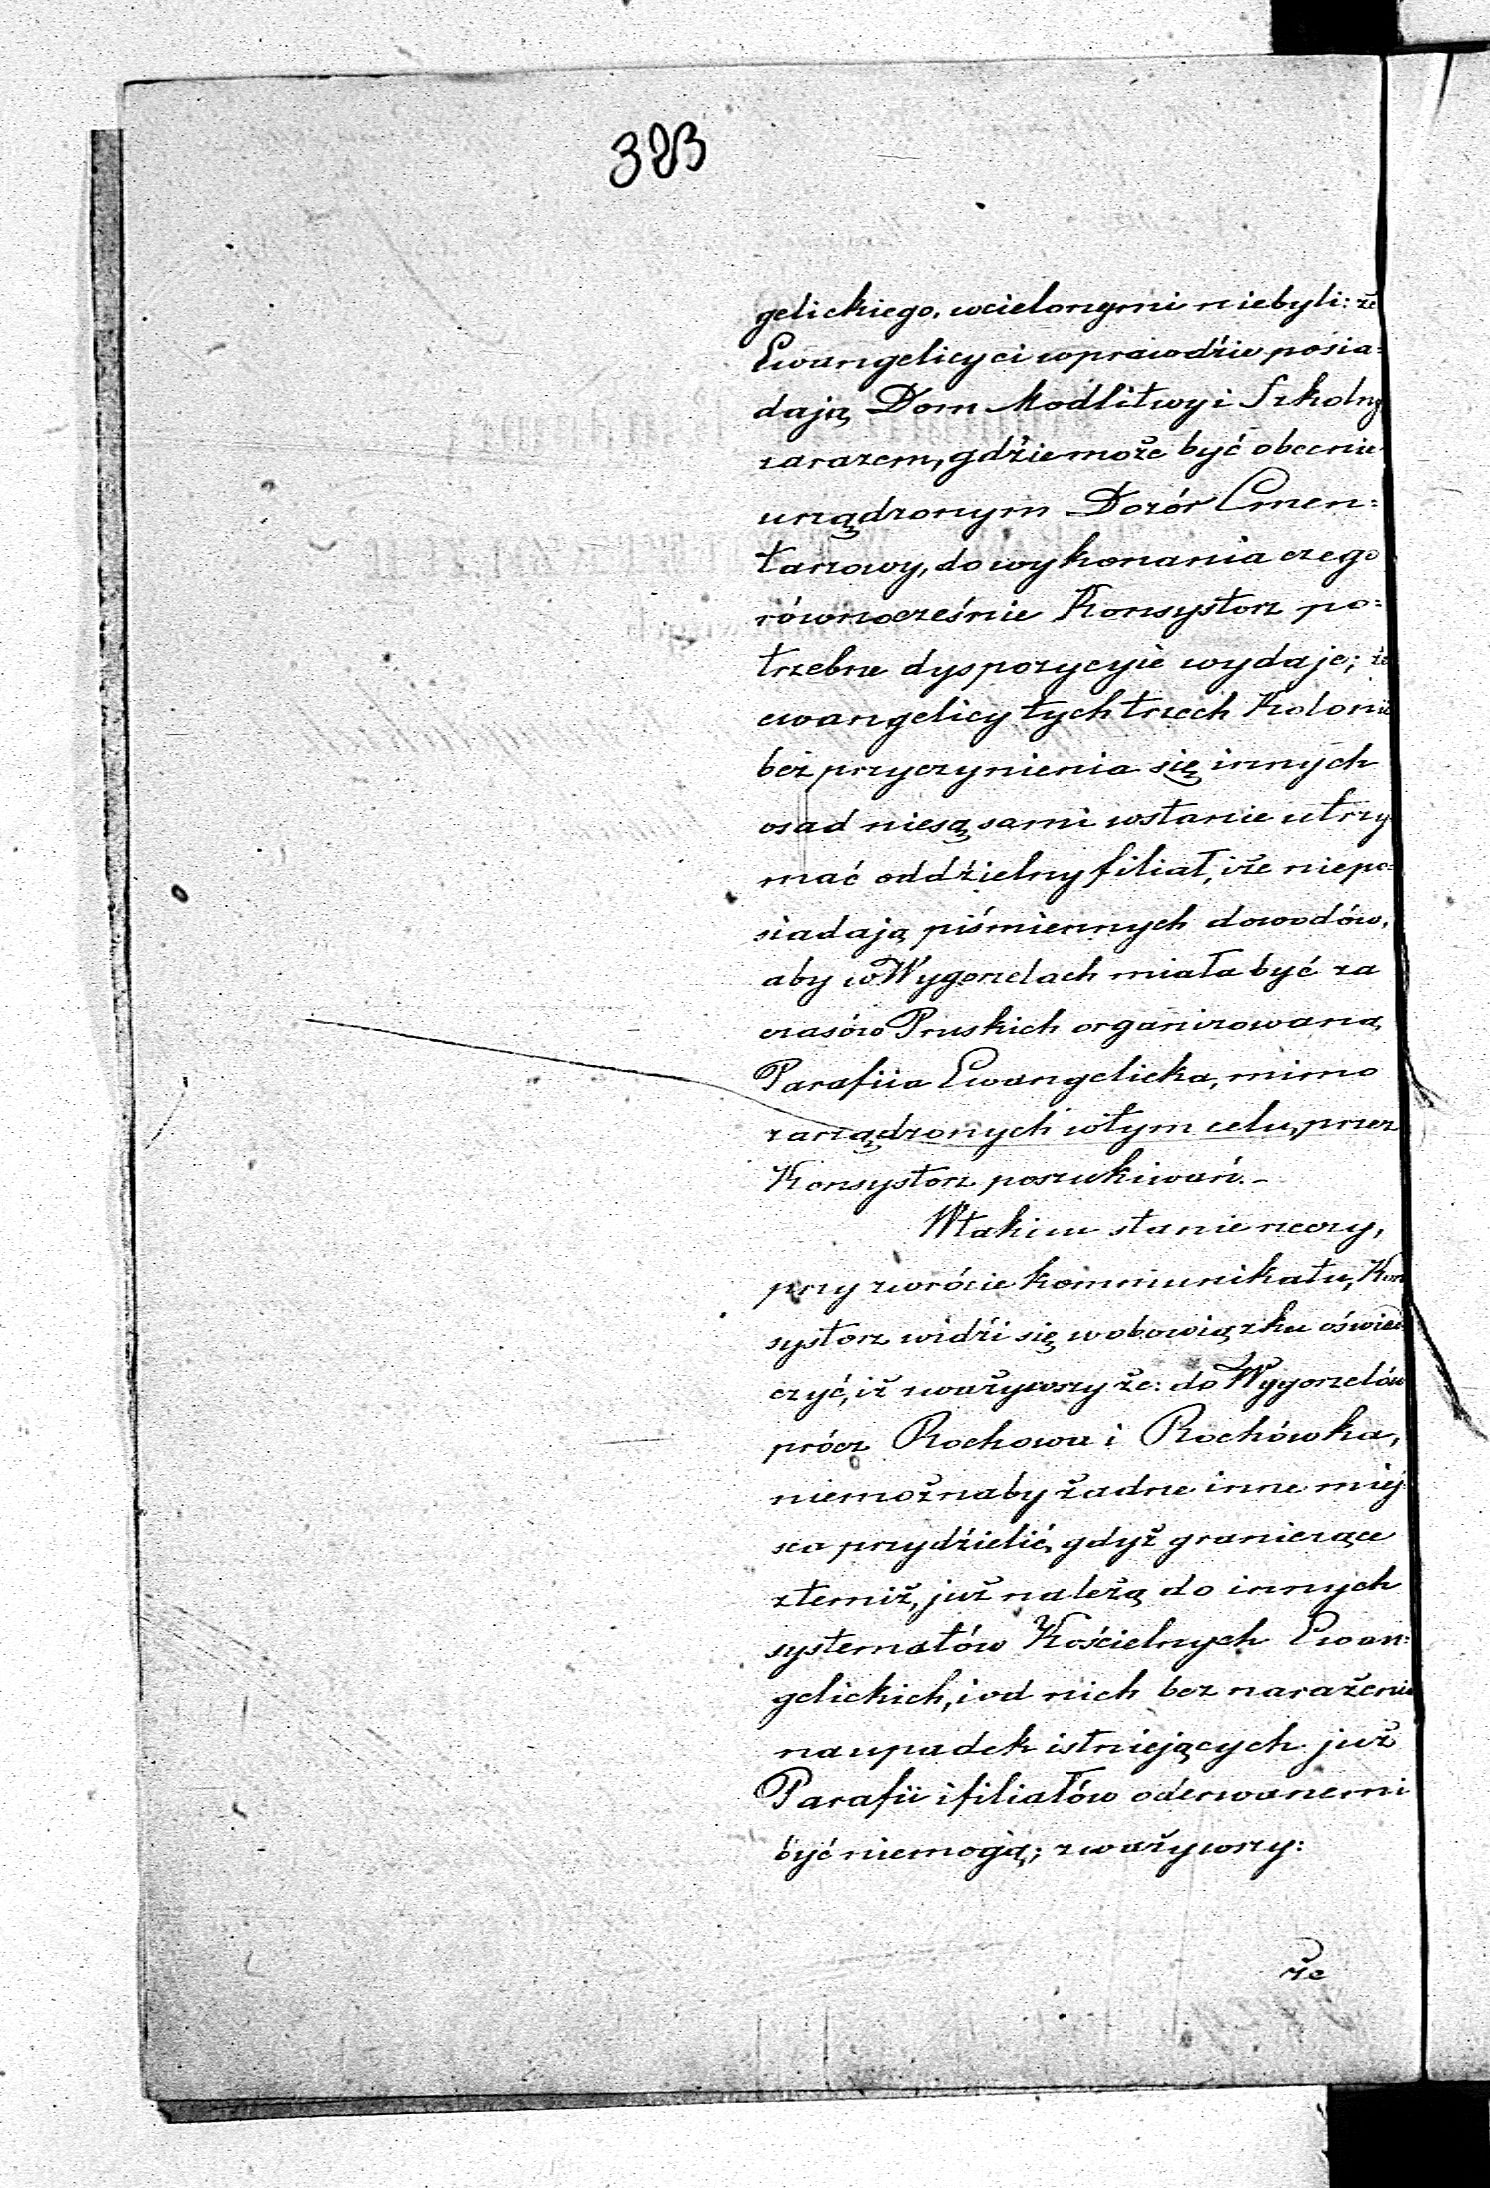 323
gelickiego, wcielonymi niebyli: że
Ewangelicy ci wprawdzie posia=
dają Dom Modlitwy i Szkolny
zarazem, gdzie może być obecnie
urządzonym Dozór Cmen=
tarzowy, do wykonania czego
równocześnie Konsystorz po=
trzebne dyspozycyie wydaje; że
ewangelicy tych trzech Kolonii
bez przyczynienia się innych
osad niesą sami wstanie utrzy
mać oddzielny filiał, iże niepo=
siadają piśmiennych dowodów,
aby w Wygorzelach miała być za
czasów Pruskich organizowaną
Parafiia Ewangelicka, mimo
zarządzonych wtym celu, przez
Konsystorz poszukiwań.-
Wtakim stanie rzeczy,
przy zwrócie kommunikatu, Kon
systorz widzi się wobowiązku oświad
czyć, iż zważywszy że: do Wygorzelów
prócz Rochowa i Rochówka,
niemożnaby żadne inne miej
sca przydzielić, gdyż graniczące
ztemiż, już należą do innych
systematów Kościelnych Ewan=
gelickich, i od nich bez narażenia
na upadek istniejących już
Parafii i filiałów oderwanemi
być niemogą; zważywszy:
że